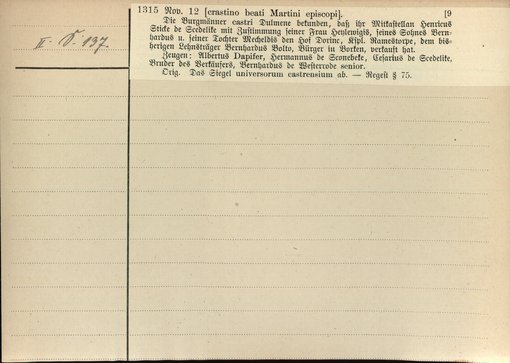 1315 Nov. 12 [crastino beati Martini episcopi]. [9
Die Burgmänner castri Dulmene bekunden, daß ihr Mitkastellan Henricus
Sticke de Scedelike mit Zustimmung seiner Frau Heylewigis, seines Sohnes Bern-
hardus u. seiner Tochter Mecheldis den Hof Dorinc, Kspl. Ramestorpe, dem bis-
herigen Lehnsträger Bernhardus Bolto, Bürger in Borken, verkauft hat.
Zeugen: Albertus Dapifer, Hermannus de Sconebeke, Cesarius de Scedelike,
Bruder des Verkäufers, Bernhardus de Westerrode senior.
Orig. Das Siegel universorum castrensium ab. — Regest § 75.
II. 137.